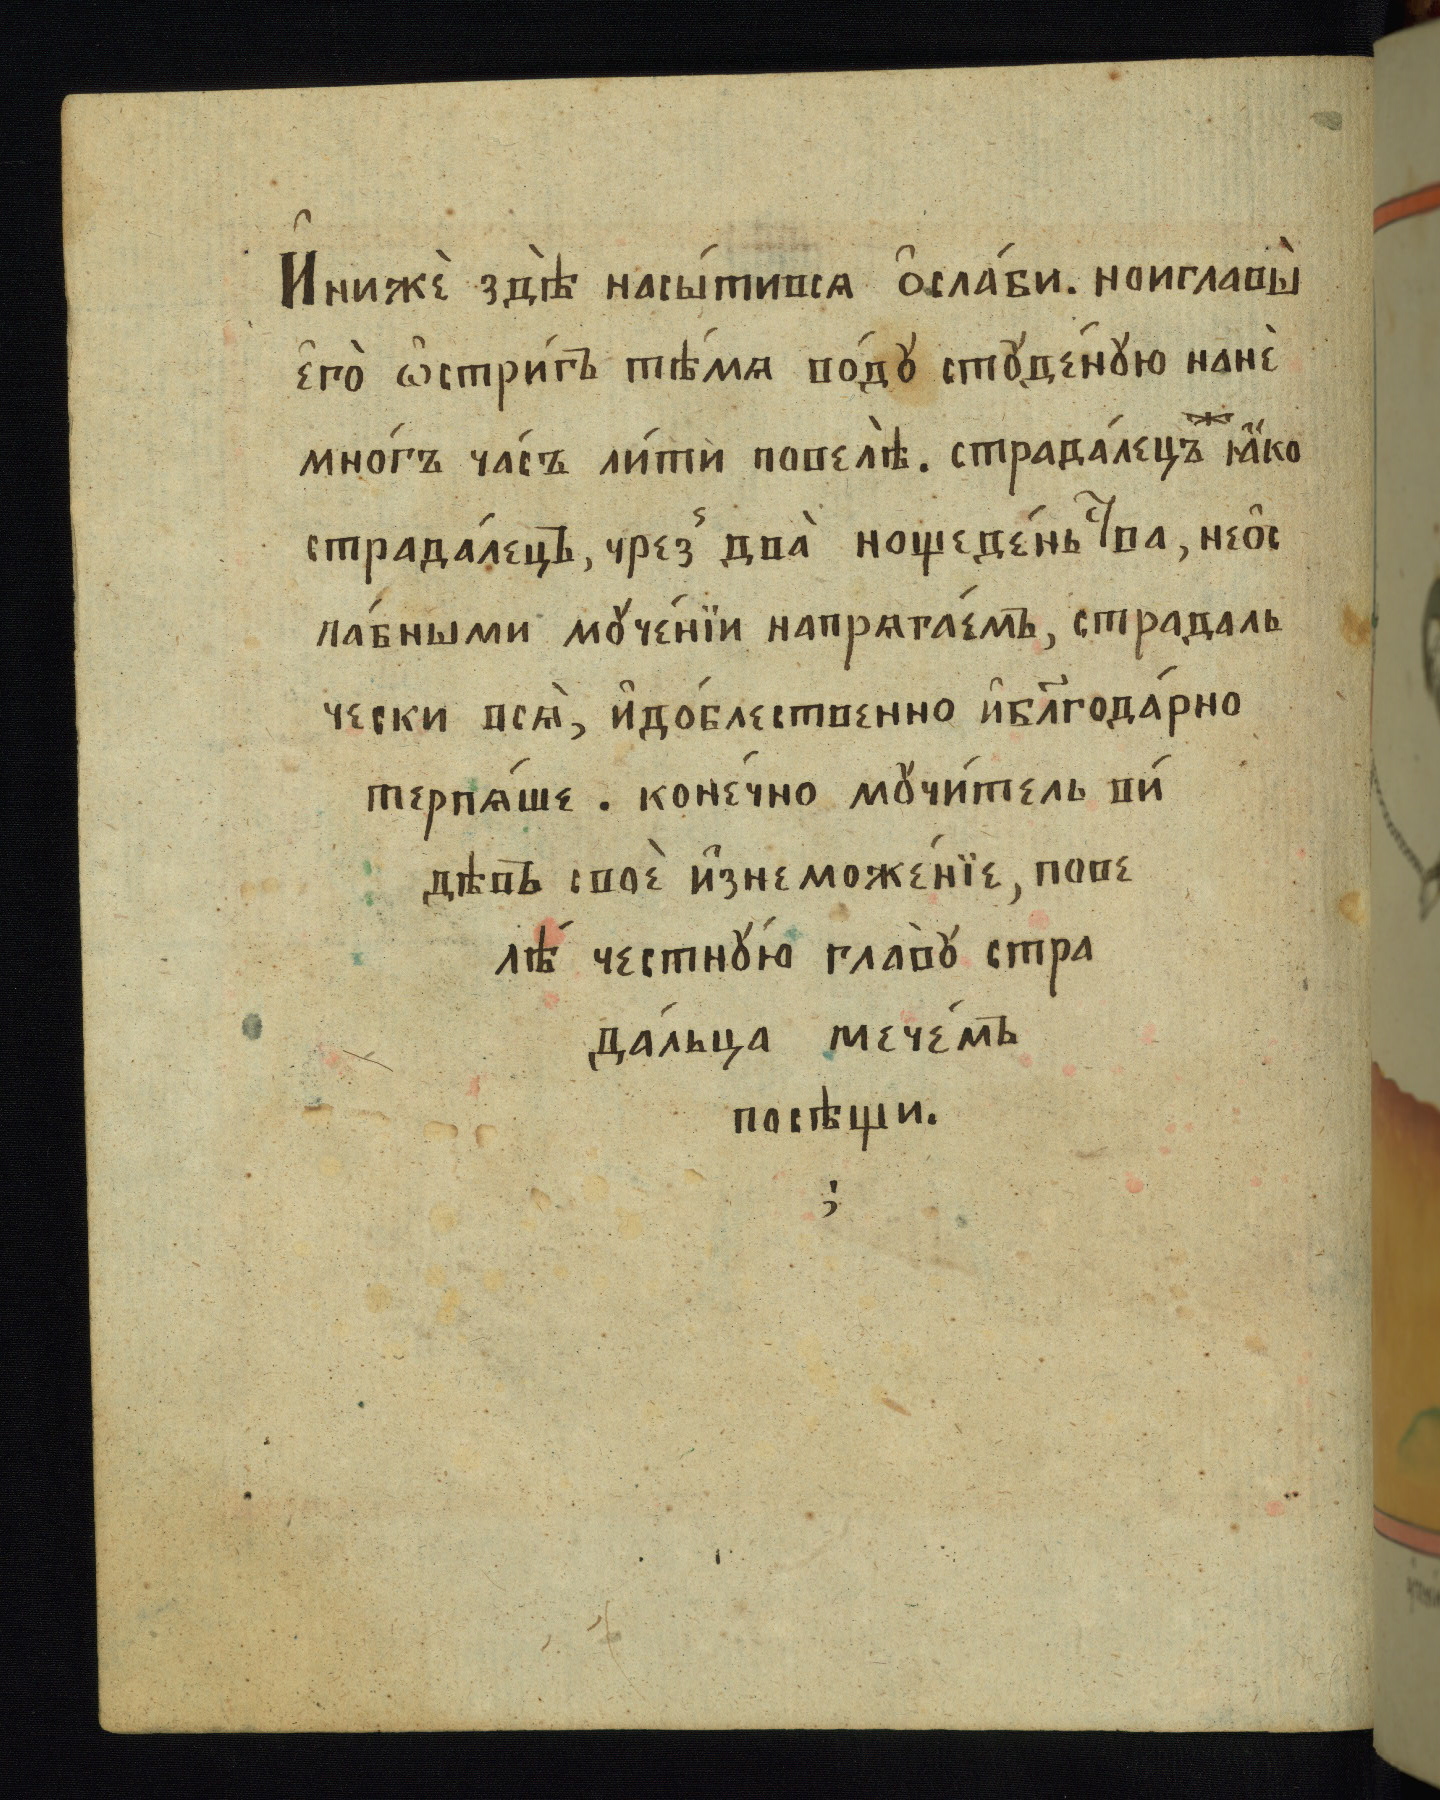 И҆нижѐ здѣ̀ насы́тивсѧ ѻ҆сла́би. ноиглавы̀
є҆го̀ ѡ҆стри́гъ тѣ́мѧ во́дꙋ стꙋде́нꙋю нанѐ
мно́гъ ча́съ ли́ти повелѣ̀. страда́лецъж ꙗ҆́ко
страда́лецъ, чрез̾ два̀ нощеде́нь ст҃ва, нео҆с
ла́бными мꙋче́нїи напрѧга́емъ, страдаль
чески всѧ̀, и҆до́блественно и҆бл҃года́рно
терпѧ́ше. коне́чно мꙋчи́тель ви́
дѣвъ своѐ и҆знеможе́нїе, пове
лѣ́ честнꙋ́ю гла̀вꙋ стра
да́льца мече́мъ
посѣщи.